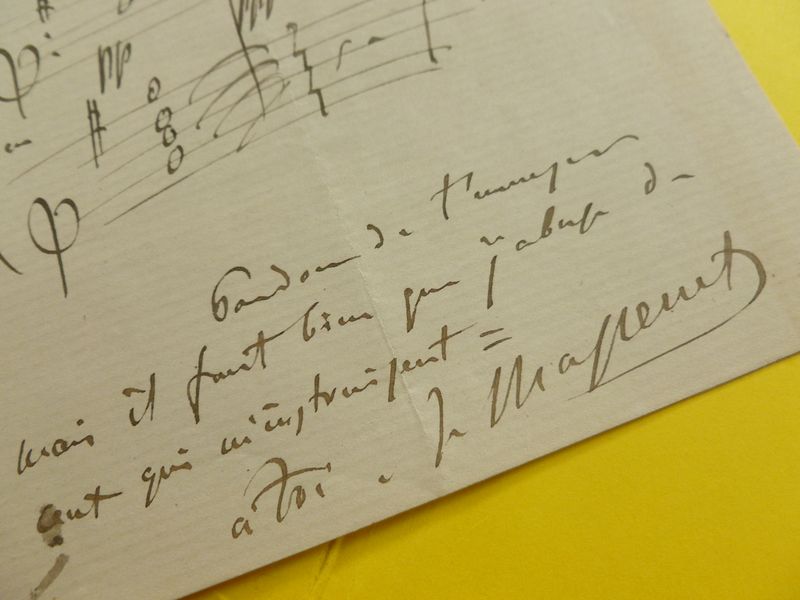 pp
Pardon de t'ennuyer
mais il faut bien que j'abuse de
ceux qui m'instruisent =
à toi. J. Massenet